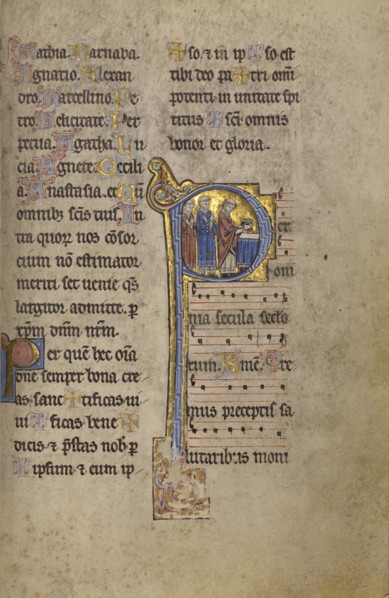 Mathia. Barnaba.
Ignatio. Alexan
dro. Marcellino. Pe
tro. Felicitate. Per
petua. Agatha. Lu
cia. Agnete. Cecili
a. Anastasia. et cū
omnib; scīs tuis. In
tra quoꝝ nos cōsor
cium nō estimator
meriti set uenie qs̄
largitor admitte. ꝑ
xp̄m dn̄m nr̄m.
Per quē hec oīa
dn̄e semper bona cre
as. sanc ✝ tificas ui
ui ✝ ficas bene ✝
dicis ⁊ p̄stas nob̄ ꝑ
✝ ipsum ⁊ cum ip
✝ so. ⁊ in ip ✝ so est
tibi deo pa ✝ tri om̄i
potenti in unitate sp̄i
ritus ✝ sc̄i omnis
honor et gloria.
Per
omi
nia secula seclo
rum. Amē. Ore
mus preceptis sa
lutaribus moni